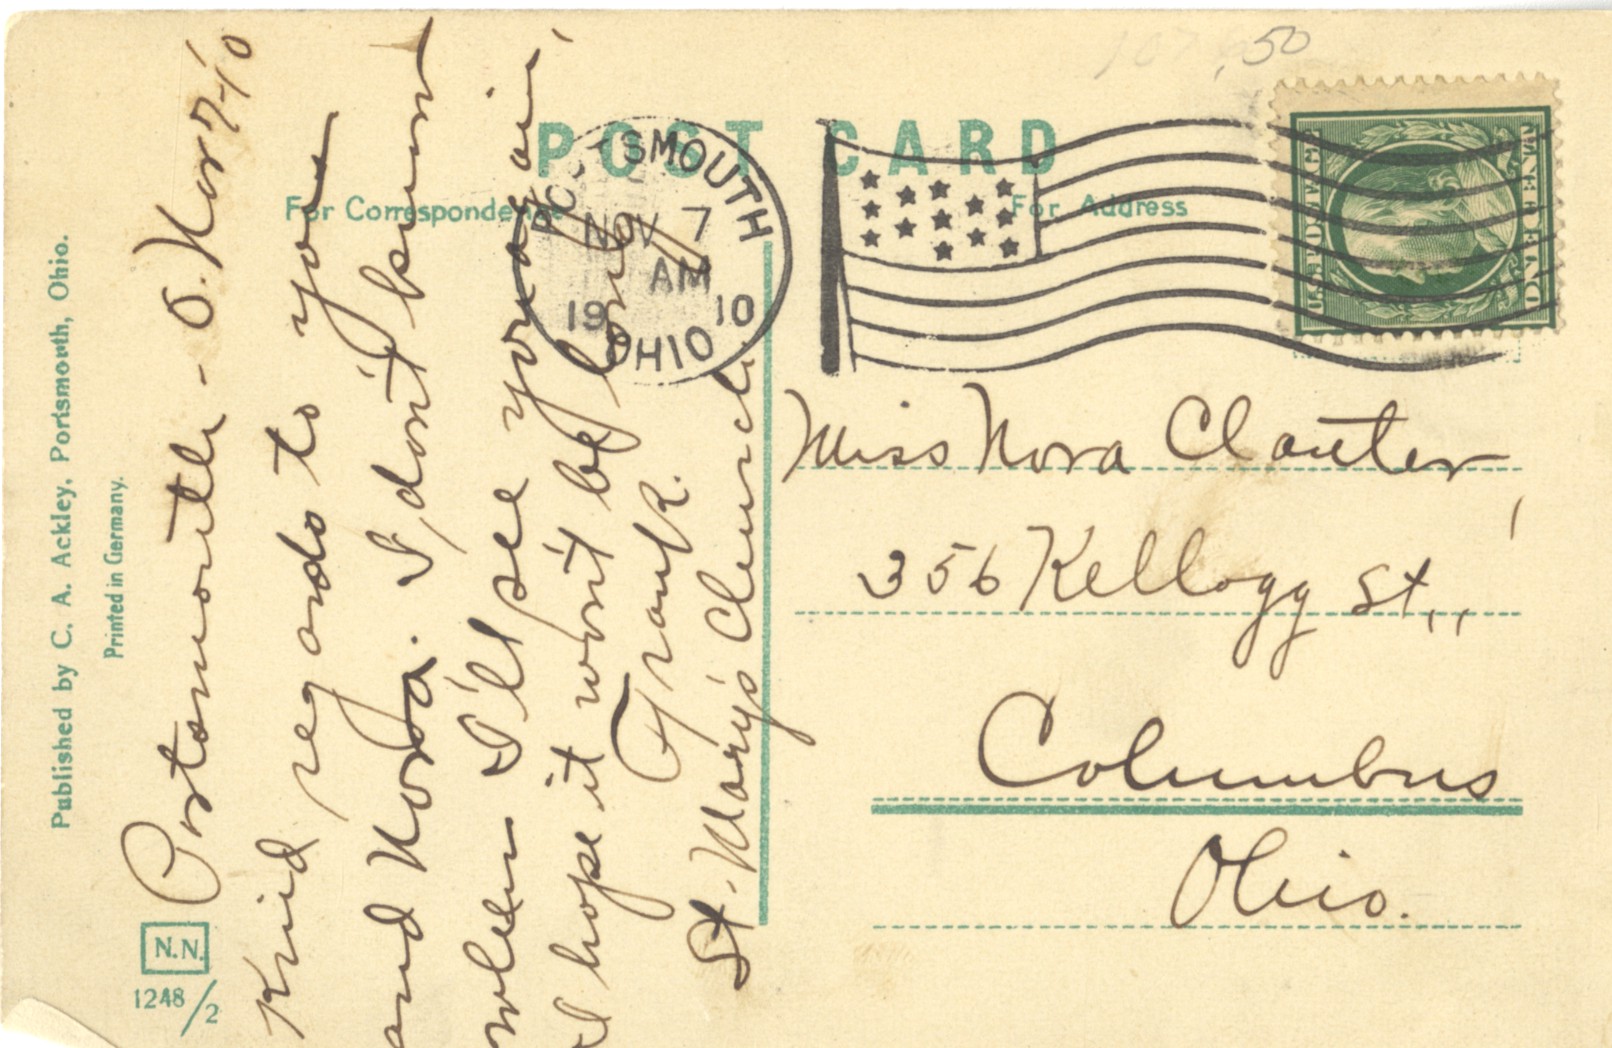 107.50
POST CARD
For Correspondence
For Address
PORTSMOUTH
NOV 7
AM
1910
OHIO
U.S. POSTAGE
ONE CENT
Published by C. A. Ackley, Portsmouth, Ohio.
Printed in Germany.
N.N.
1248/2
Portsmouth - O. Nov 7-'10
Kind regards to you
and Nora. I, don't know
when I'll see you again,
I hope it won't be long
Frank.
St. Mary's Church
Miss Nora Clauter,
356 Kellogg St.,
Columbus
Ohio.